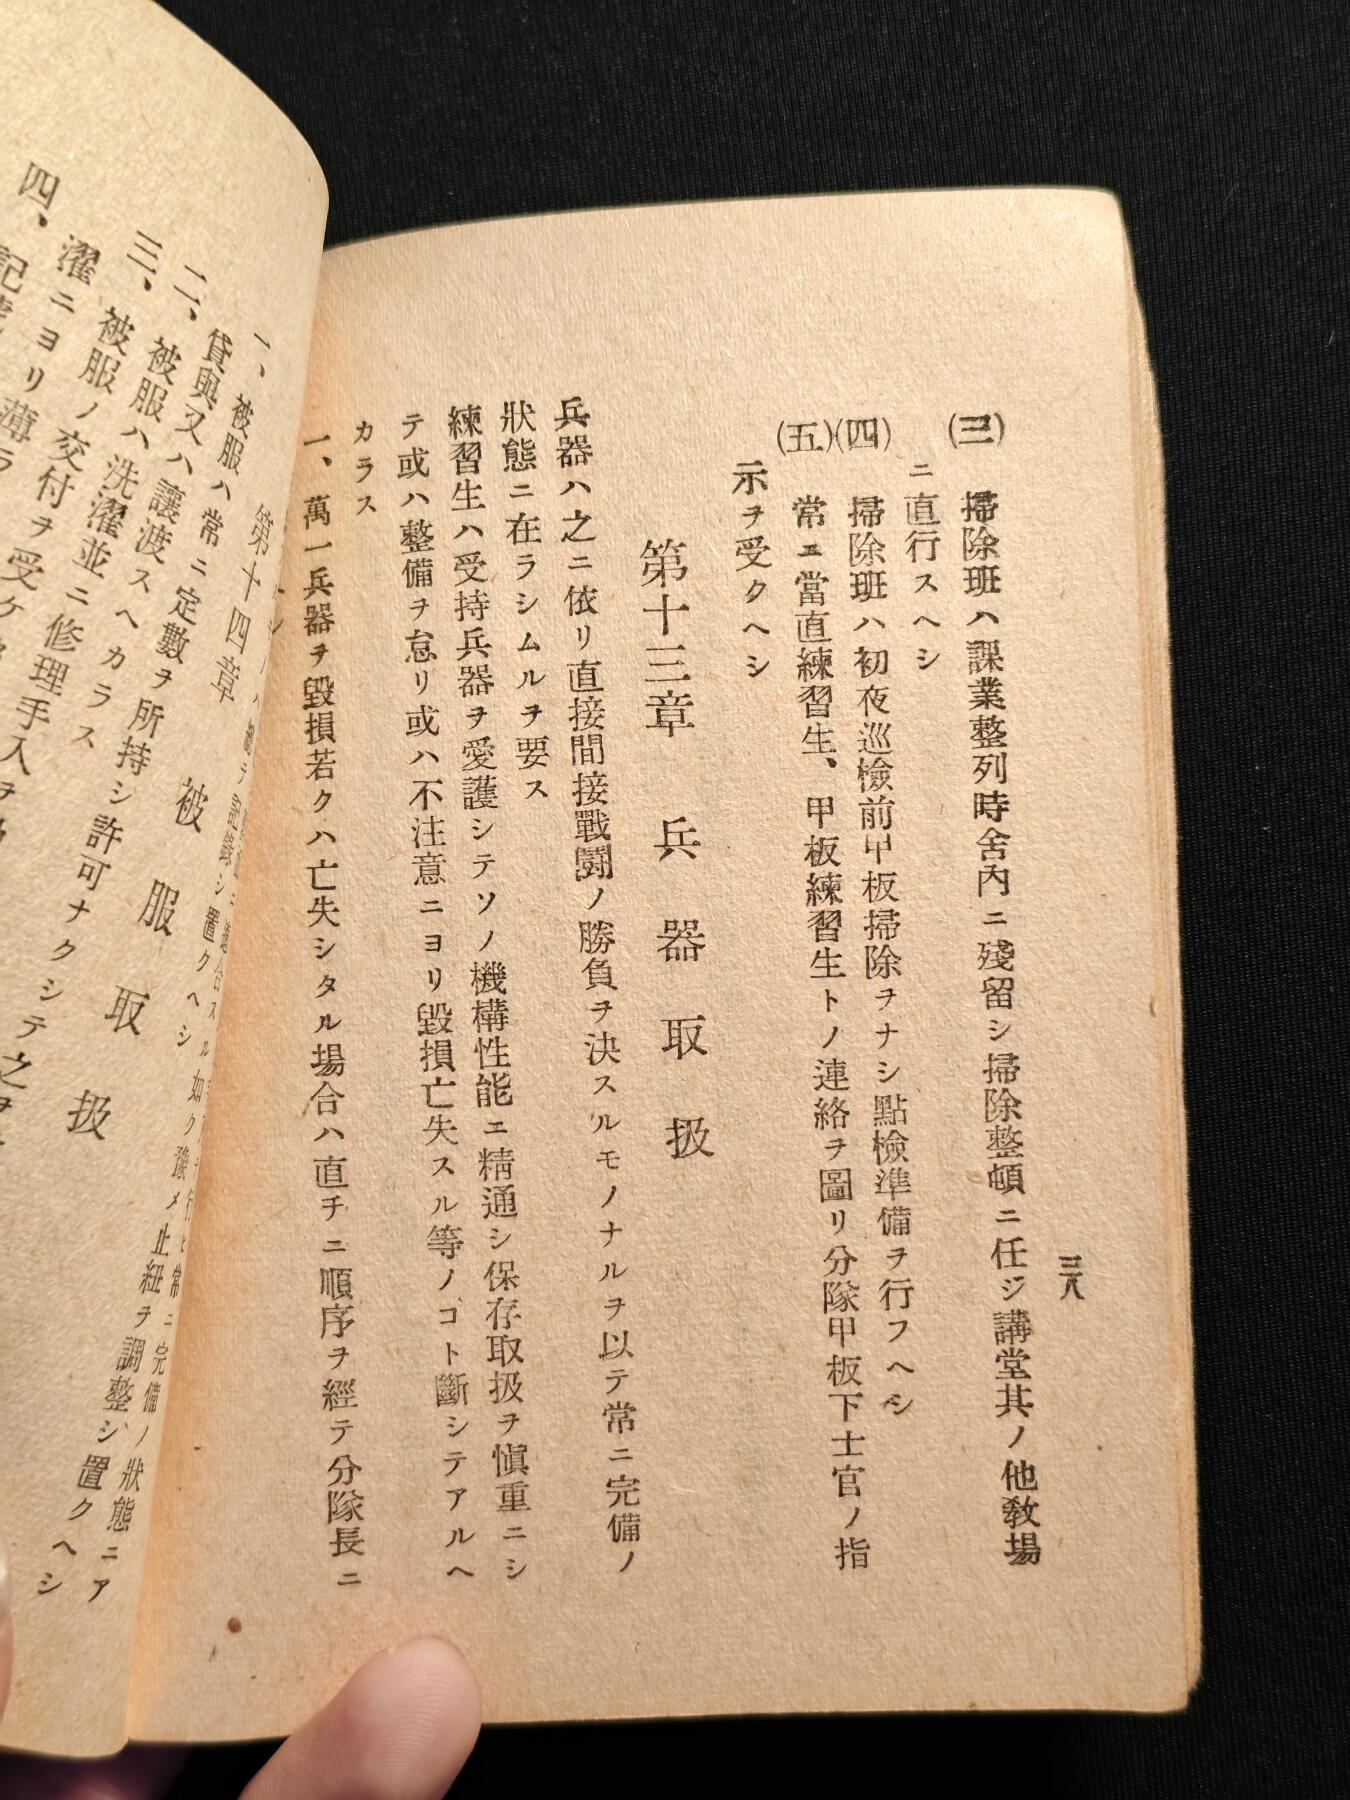 三八
㈢ 掃除班ハ課業整列時舍內ニ殘留シ掃除整頓ニ任ジ講堂其ノ他敎場
ニ直行スヘシ
㈣ 掃除班ハ初夜巡檢前甲板掃除ヲナシ點檢準備ヲ行フヘシ
㈤ 常ニ當直練習生、甲板練習生トノ連絡ヲ圖リ分隊甲板下士官ノ指
示ヲ受クヘシ
第十三章 兵器取扱
兵器ハ之ニ依リ直接間接戰鬪ノ勝負ヲ決スルモノナルヲ以テ常ニ完備ノ
狀態ニ在ラシムルヲ要ス
練習生ハ受持兵器ヲ愛護シテソノ機構性能ニ精通シ保存取扱ヲ愼重ニシ
テ或ハ整備ヲ怠リ或ハ不注意ニヨリ毀損亡失スル等ノゴト斷シテアルヘ
カラス
一、萬一兵器ヲ毀損若クハ亡失シタル場合ハ直チニ順序ヲ經テ分隊長ニ
記錄シ置クヘシ
第十四章 被服取扱
一、被服ハ常ニ定數ヲ所持シ
常ニ完備ノ狀態ニア
如ク豫メ止紐ヲ調整シ置クヘシ
二、被服ハ
許可ナクシテ之ヲ
貸與又ハ讓渡スヘカラス
三、被服ハ洗濯並ニ修理手入ヲ
四、被服ノ交付ヲ受ケ
濯ニヨリ薄ラ